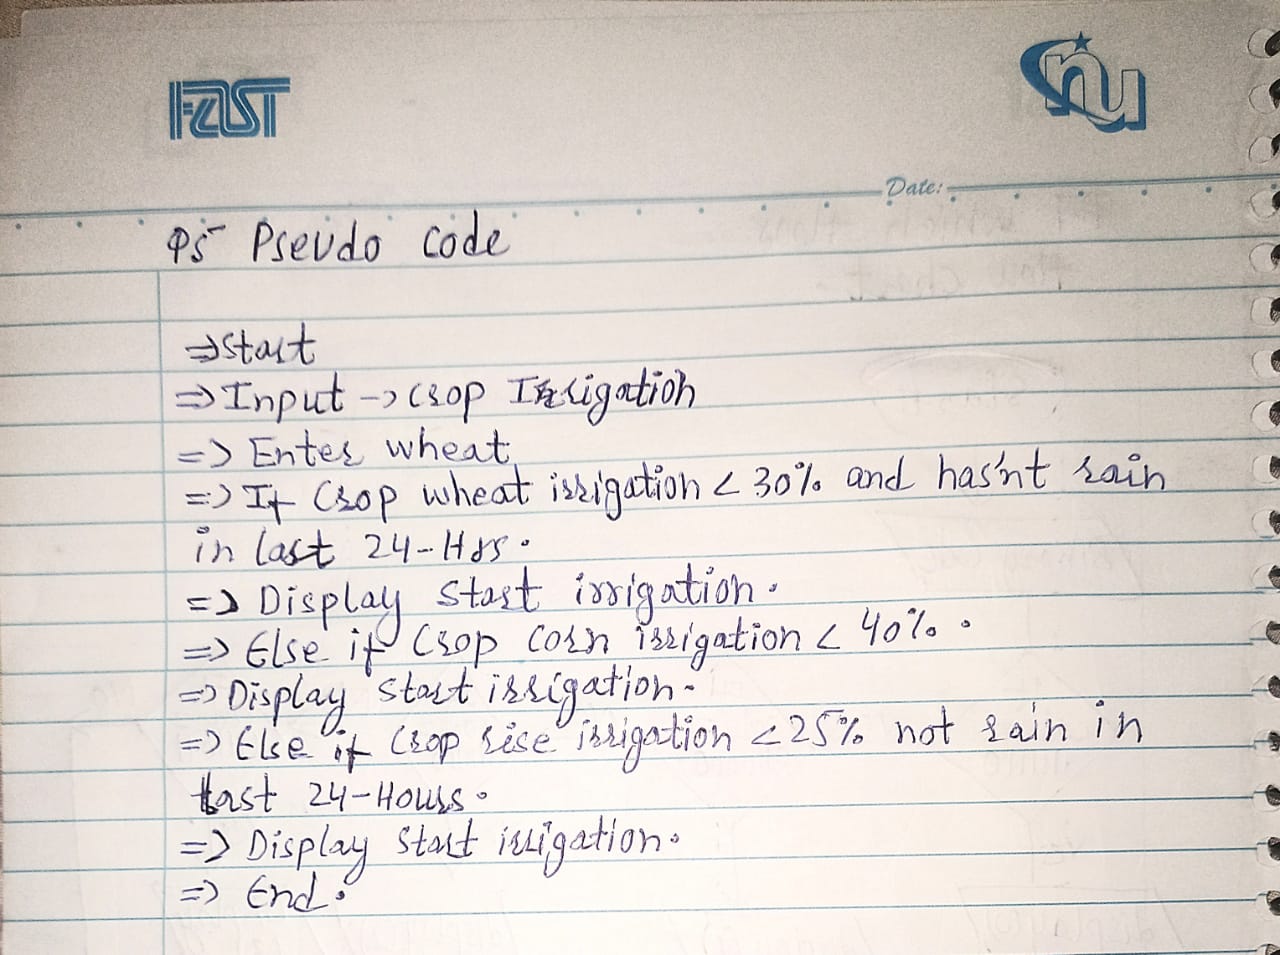 FAST
nu
Date:
P5 Pseudo code
⇒ Start
⇒ Input → Crop Irrigation
=> Enter wheat
=> If Crop wheat irrigation < 30% and has'nt rain
in last 24-Hrs.
=> Display Start irrigation.
=> Else if Crop Corn irrigation < 40%.
=> Display start irrigation.
=> Else if Crop rise irrigation < 25% not rain in
last 24-Hours.
=> Display Start irrigation.
=> End.